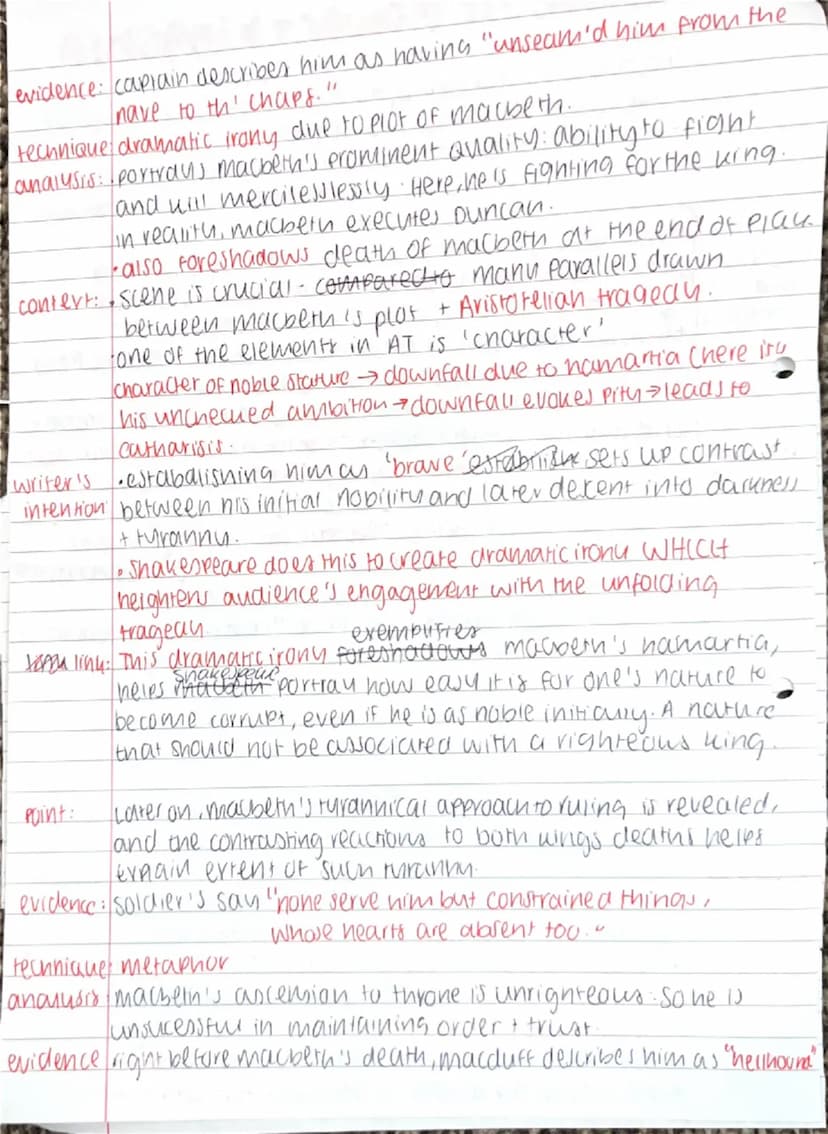 evidence: captain describes him as having "unseam'd him from the
nave to th' chaps."
technique: dramatic irony due to plot of macbeth.
analysis: portrays macbeth's prominent quality: ability to fight
and kill mercilesslessly. Here, he is fighting for the king.
in reality, macbeth executes Duncan.
• also foreshadows death of macbeth at the end of play.
context: • scene is crucial - compared to many parallels drawn
between macbeth's plot + Aristotelian tragedy.
one of the elements in AT is 'character'
character of noble stature → downfall due to hamartia (here its
his unchecked ambition → downfall evokes pity → leads to
catharisis.
writer's • estabalishing him as 'brave' establishes sets up contrast
intention between his initial nobility and later decent into darkness
+ tyranny.
• Shakespeare does this to create dramatic irony WHICH
heightens audience's engagement with the unfolding
tragedy exemplifies
link: This dramatic irony foreshadows macbeth's hamartia,
shakespeare
helps macbeth portray how easy it is for one's nature to
become corrupt, even if he is as noble initially. A nature
that should not be associated with a righteous king.
point: Later on, macbeth's tyrannical approach to ruling is revealed,
and the contrasting reactions to both kings deaths helps
explain extent of such tyranny.
evidence: soldier's say "none serve him but constrained things,
whose hearts are absent too."
technique: metaphor
analysis macbeth's ascension to throne is unrighteous. so he is
unsucessful in maintaining order + trust.
evidence right before macbeth's death, macduff describes him as "hellhound"